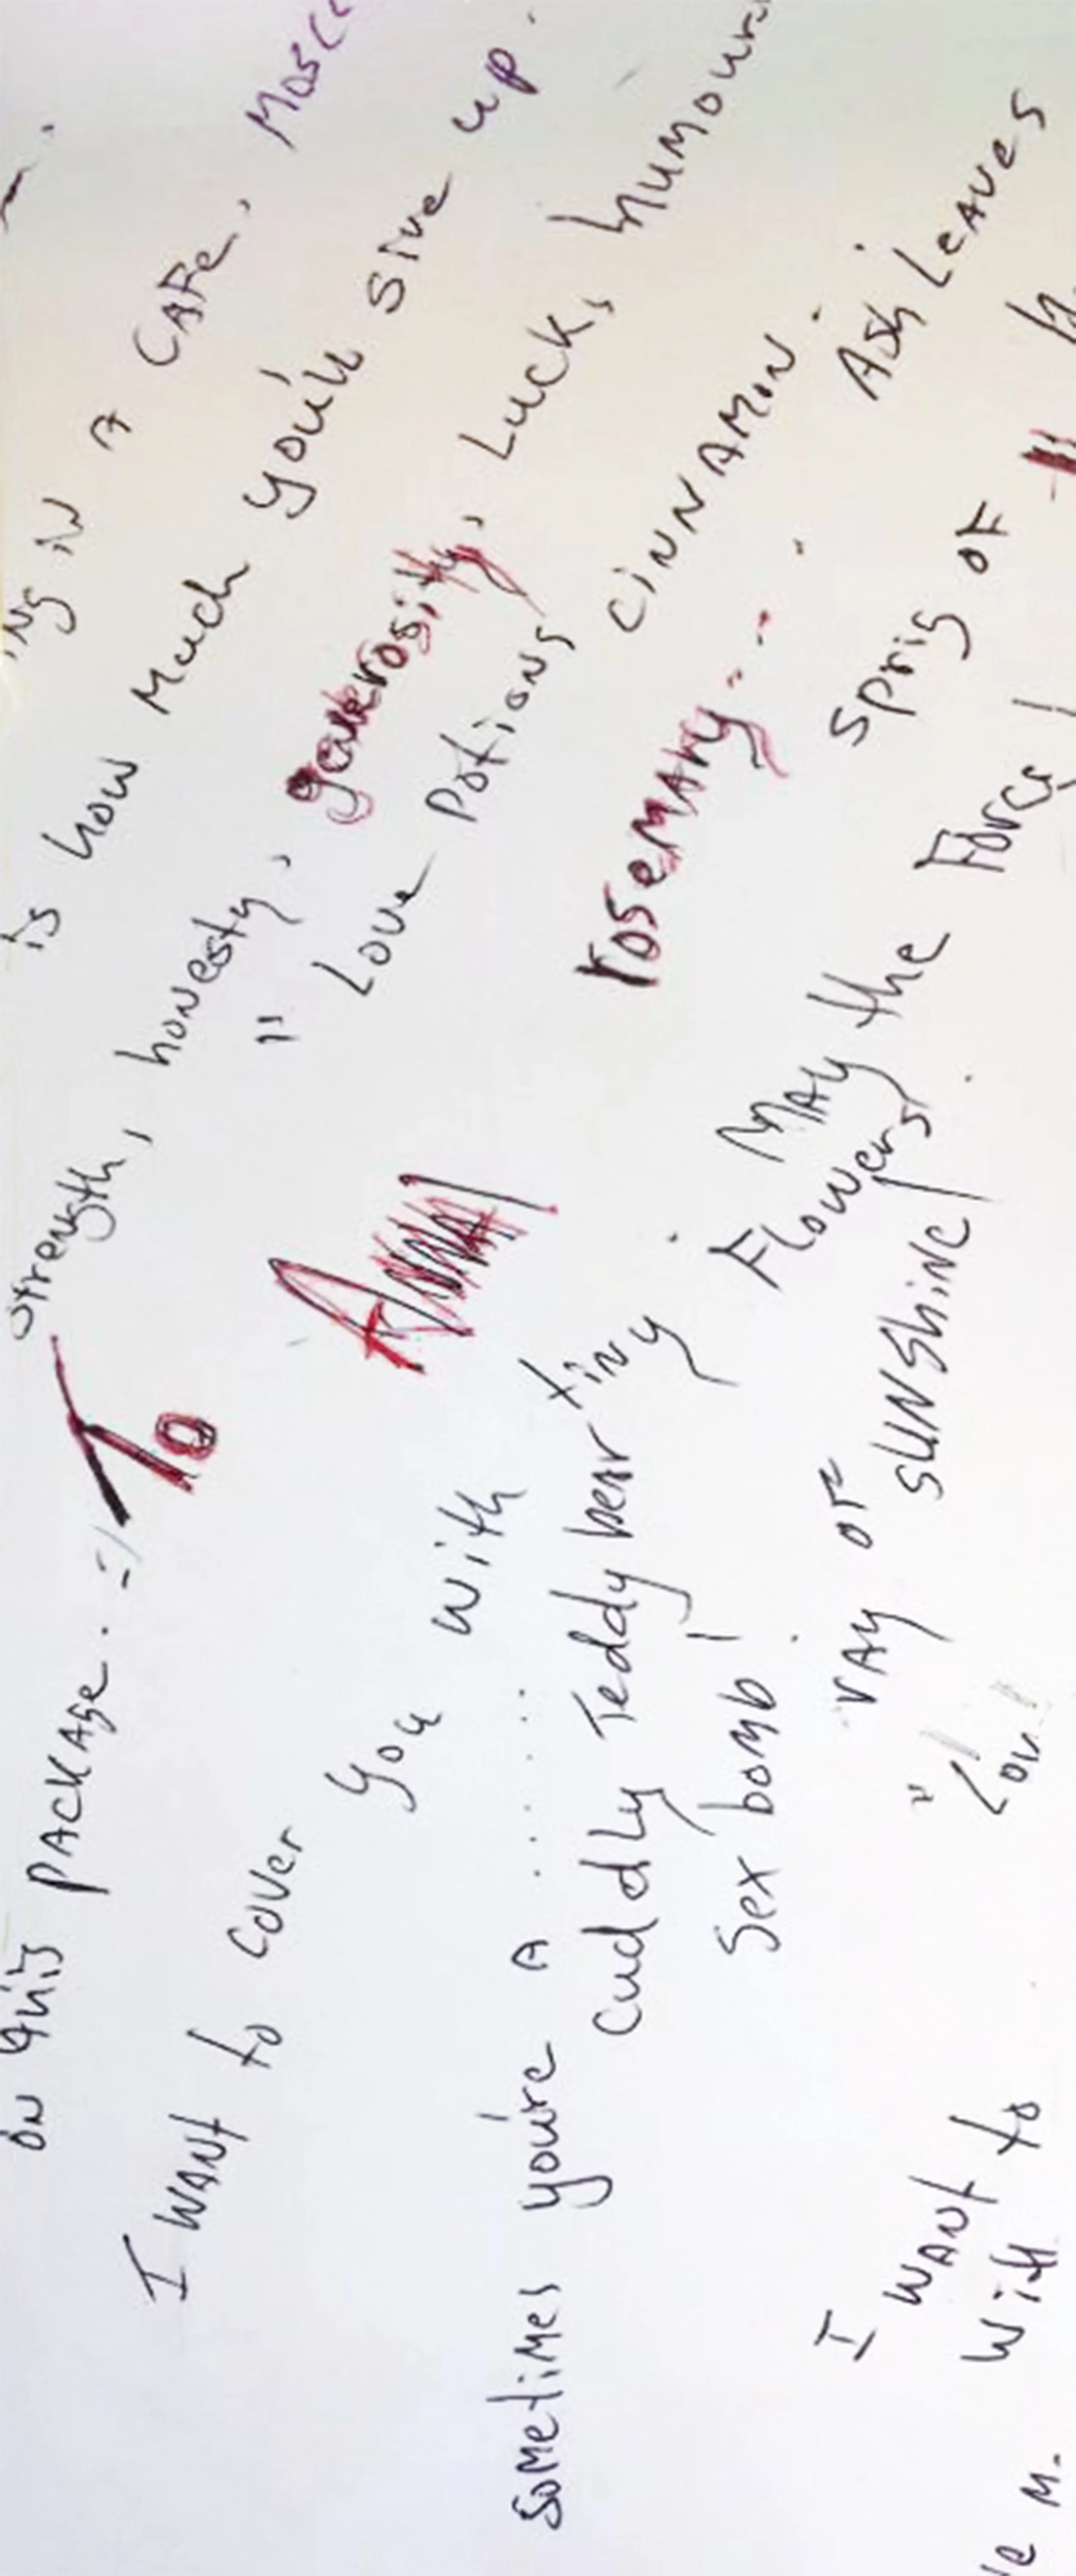 ing in a CAFe, Mosc
is how Much you'll give up.
strength, honesty, generosity, Luck, humour
" Love Potions CiNNAMiN.
rosemary - - . Ash LeAves
sprig of
on this PACKAge. To ANNA
May the Force
I WANt to cover you with tiny Flowers.
sometimes you're A ..... cuddly Teddy bear
Sex bomb!
rAy of sUNShiNe!
" Lov
I WANt to
With